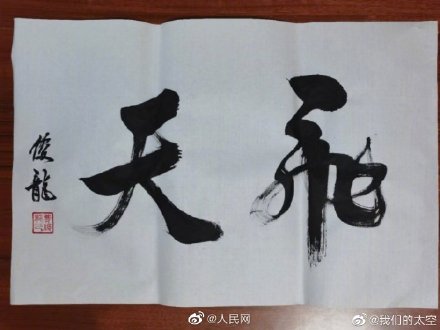 飛天
俊龍
@人民网
@我们的太空